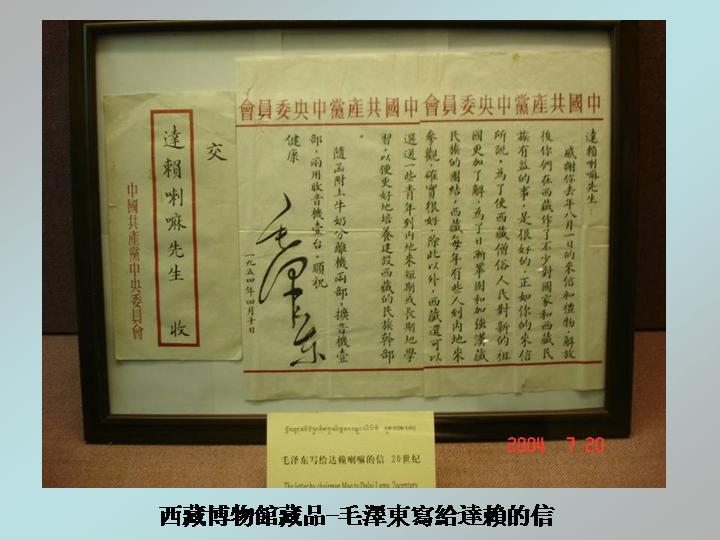 中國共產黨中央委員會
中國共產黨中央委員會
達賴喇嘛先生：
感謝你去年八月一日的來信和禮物，解放
後你們在西藏作了不少對國家和西藏民
族有益的事，是很好的，正如你的來信
所說，為了使西藏僧俗人民對新的祖
國更加了解，為了日漸鞏固和加強漢藏
民族的團結，西藏每年有些人到內地來
參觀，確實很好，除此以外，西藏還可以
選送一些青年到內地來短期或長期地學
習，以便更好地培養建設西藏的民族幹部
。
隨函附上牛奶分離機兩部，擴音機壹
部，兩用收音機壹台，順祝
健康
毛澤东
一九五四年四月十日
交
達賴喇嘛先生 收
中國共產黨中央委員會
毛泽东写给达赖喇嘛的信 20世纪
The letter by chairman Mao to Dalai Lama, 20century
2004 7 20
西藏博物館藏品–毛澤東寫給達賴的信